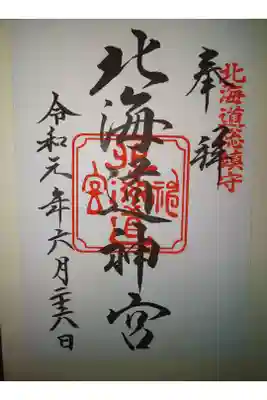 北海道総鎮守
奉拝
北海道神宮
北海道神宮
令和元年六月二十六日